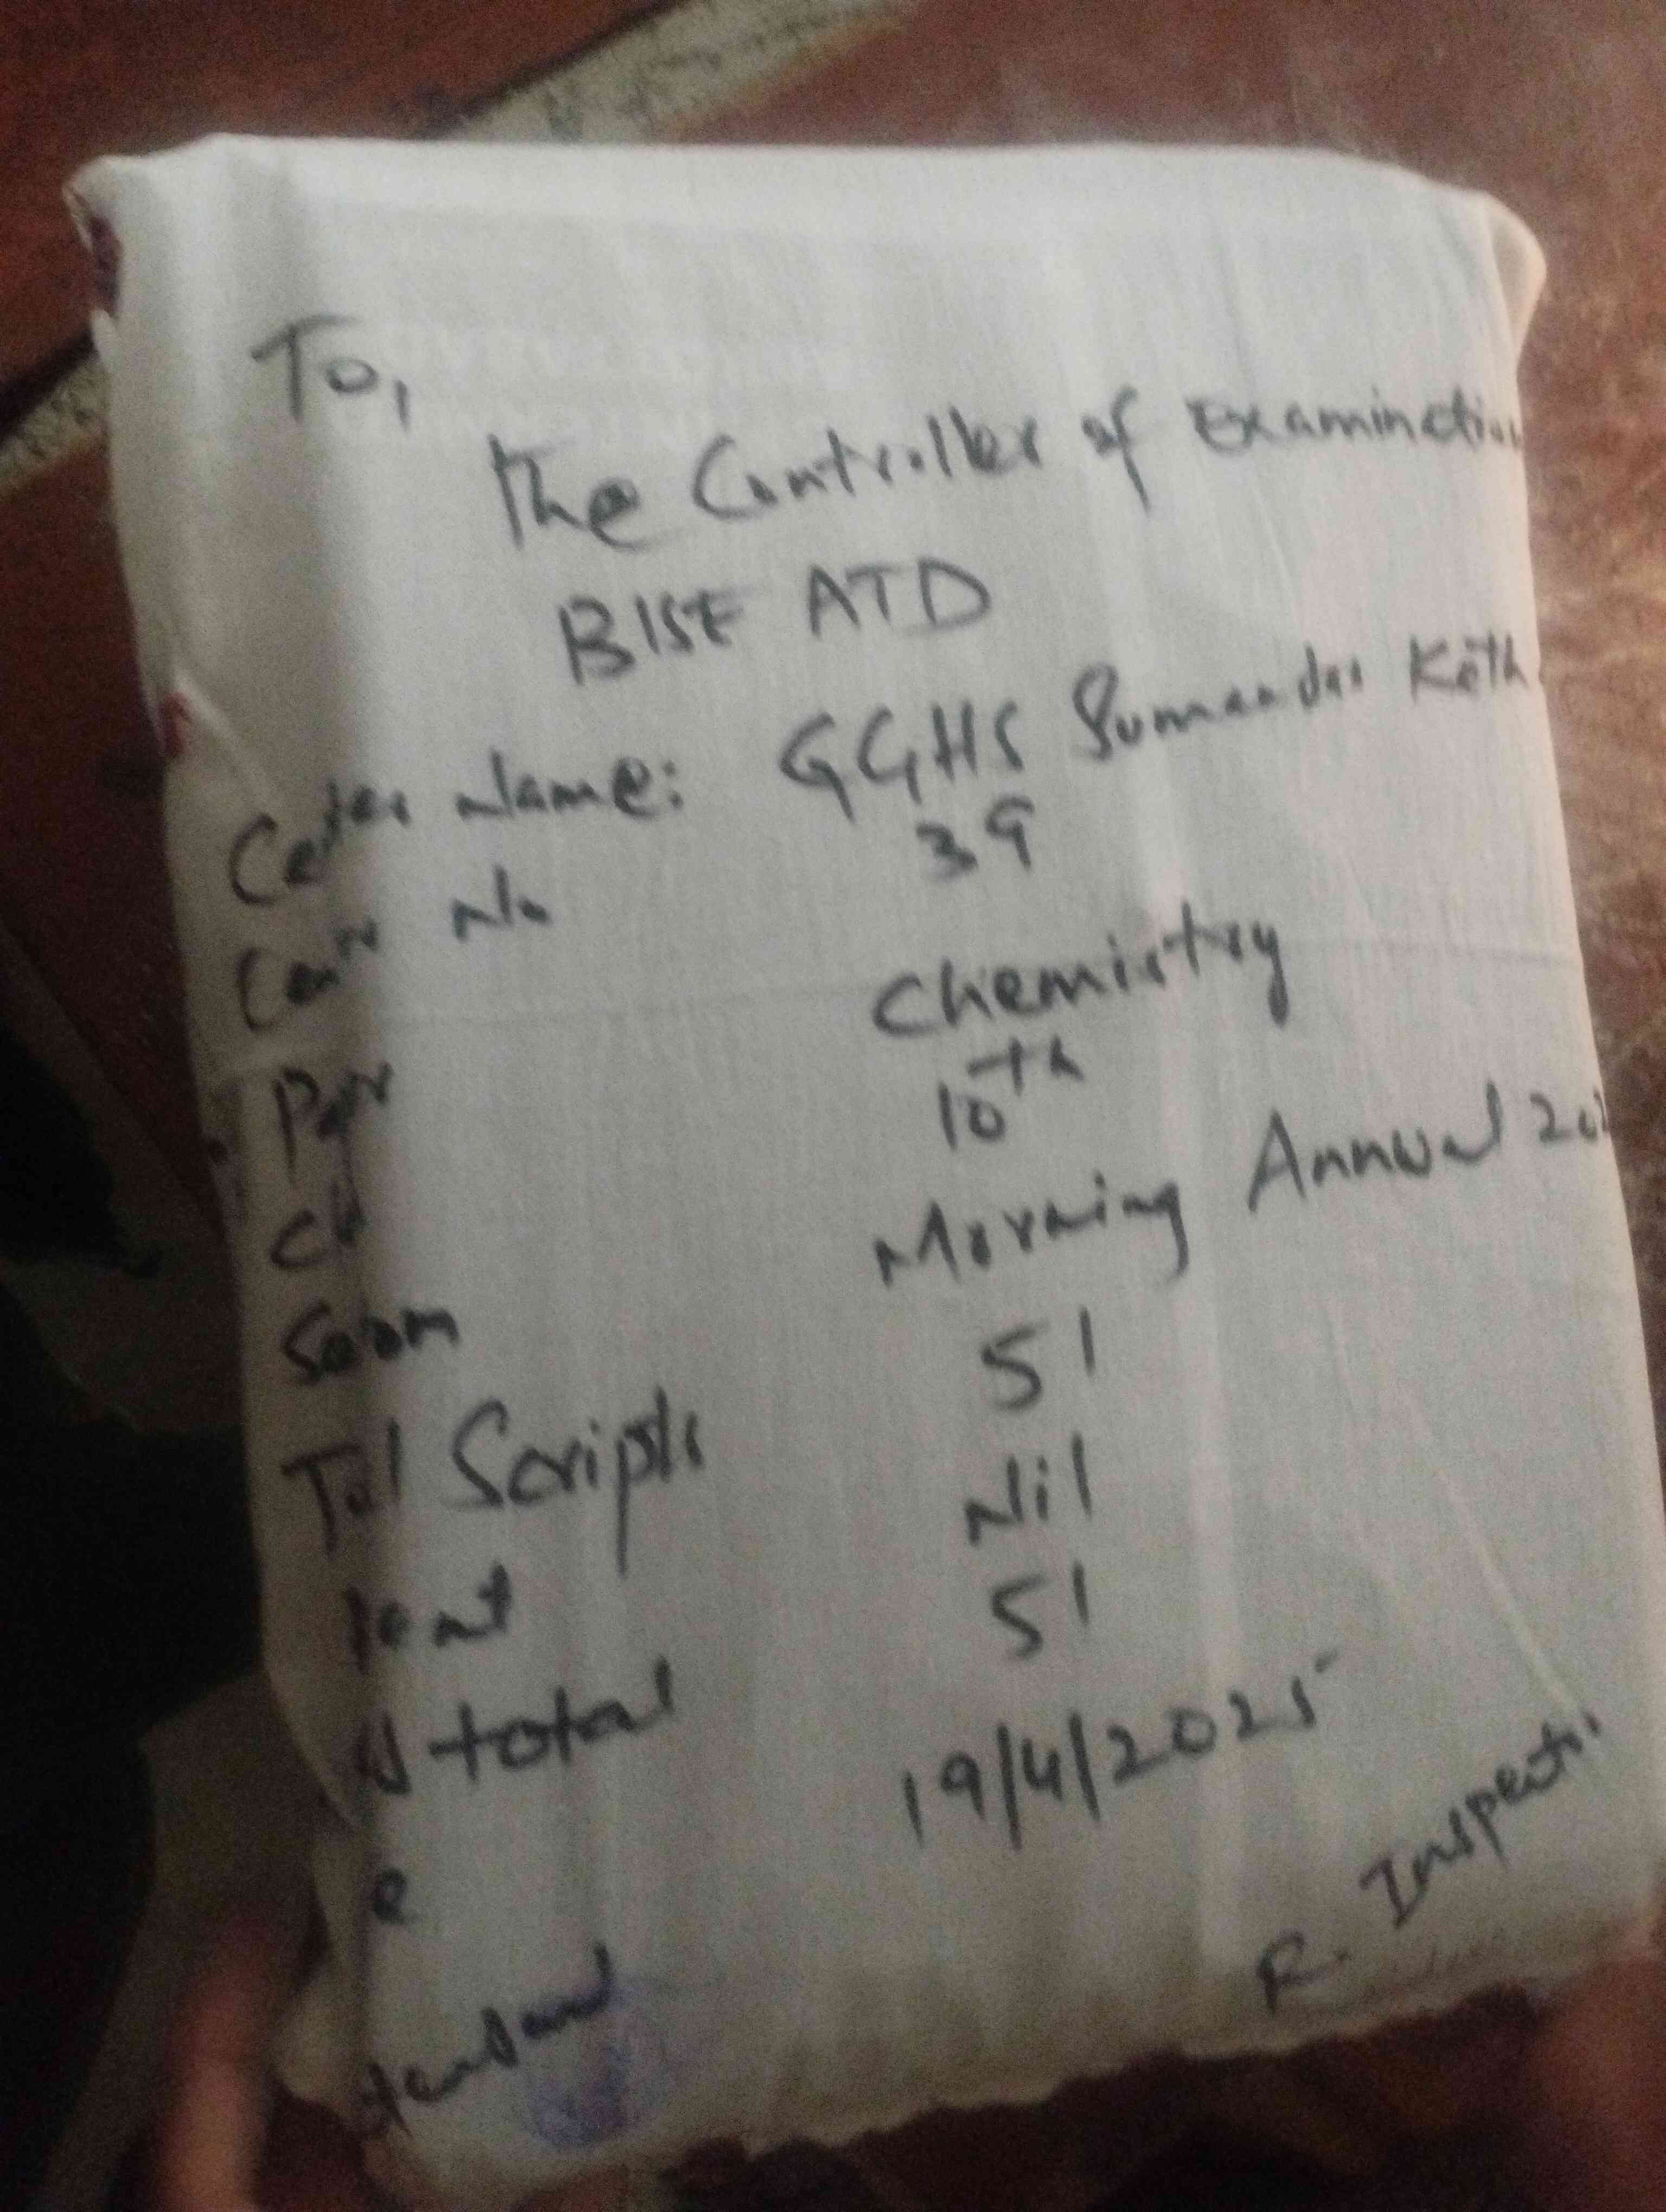 To,
The Controller of Examination
BISE ATD
Center Name: GGHS Sumandar Kath
Center No 39
Paper Chemistry
10th
Morning Annual 202
Total Scripts 51
Nil
total 51
19/4/2025
R. Inspector